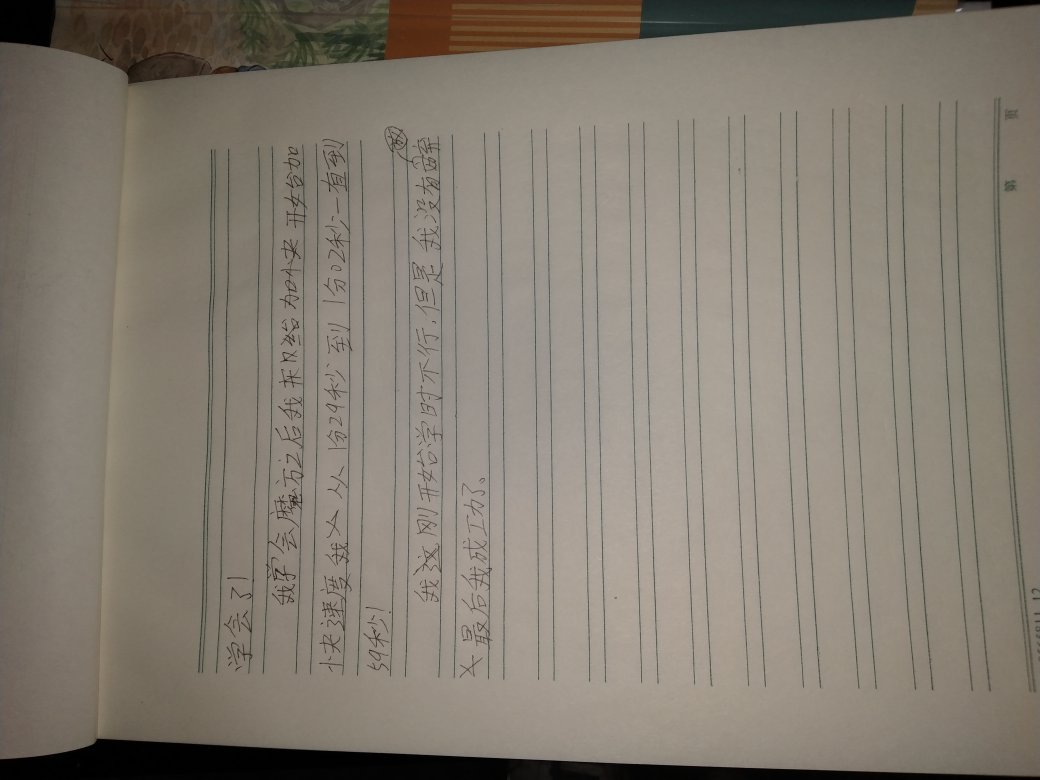 学会了!
我学会魔方之后我开始加快开始加
快速度我又从1分29秒到1分02秒一直到
59秒!
我这刚开始学时不行,但是我没有放
又最后我成功了、
第 页